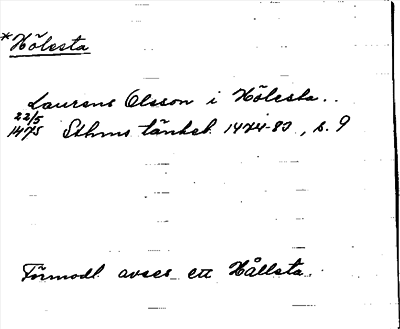 *Hölesta
Laurens Olsson i Hölesta.
22/5 1475 Sthms tänkeb. 1474-83, s. 9
Förmodl. avses ett Hållsta.